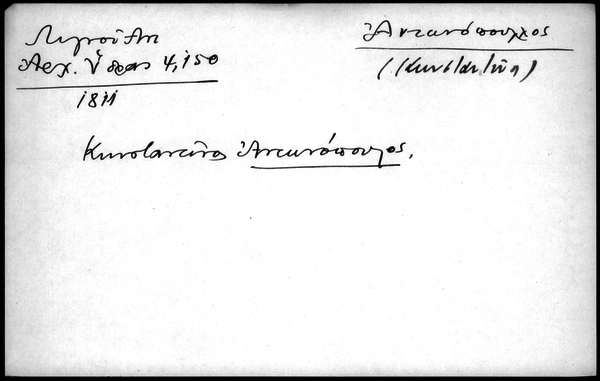 Λιγνού Αντ
Ἀρχ. Ὕδρας 4, 150
1811
Ἀντωνόπουλος
(Κωνσταντῖν)
Κωνσταντῖνος Ἀντωνόπουλος.